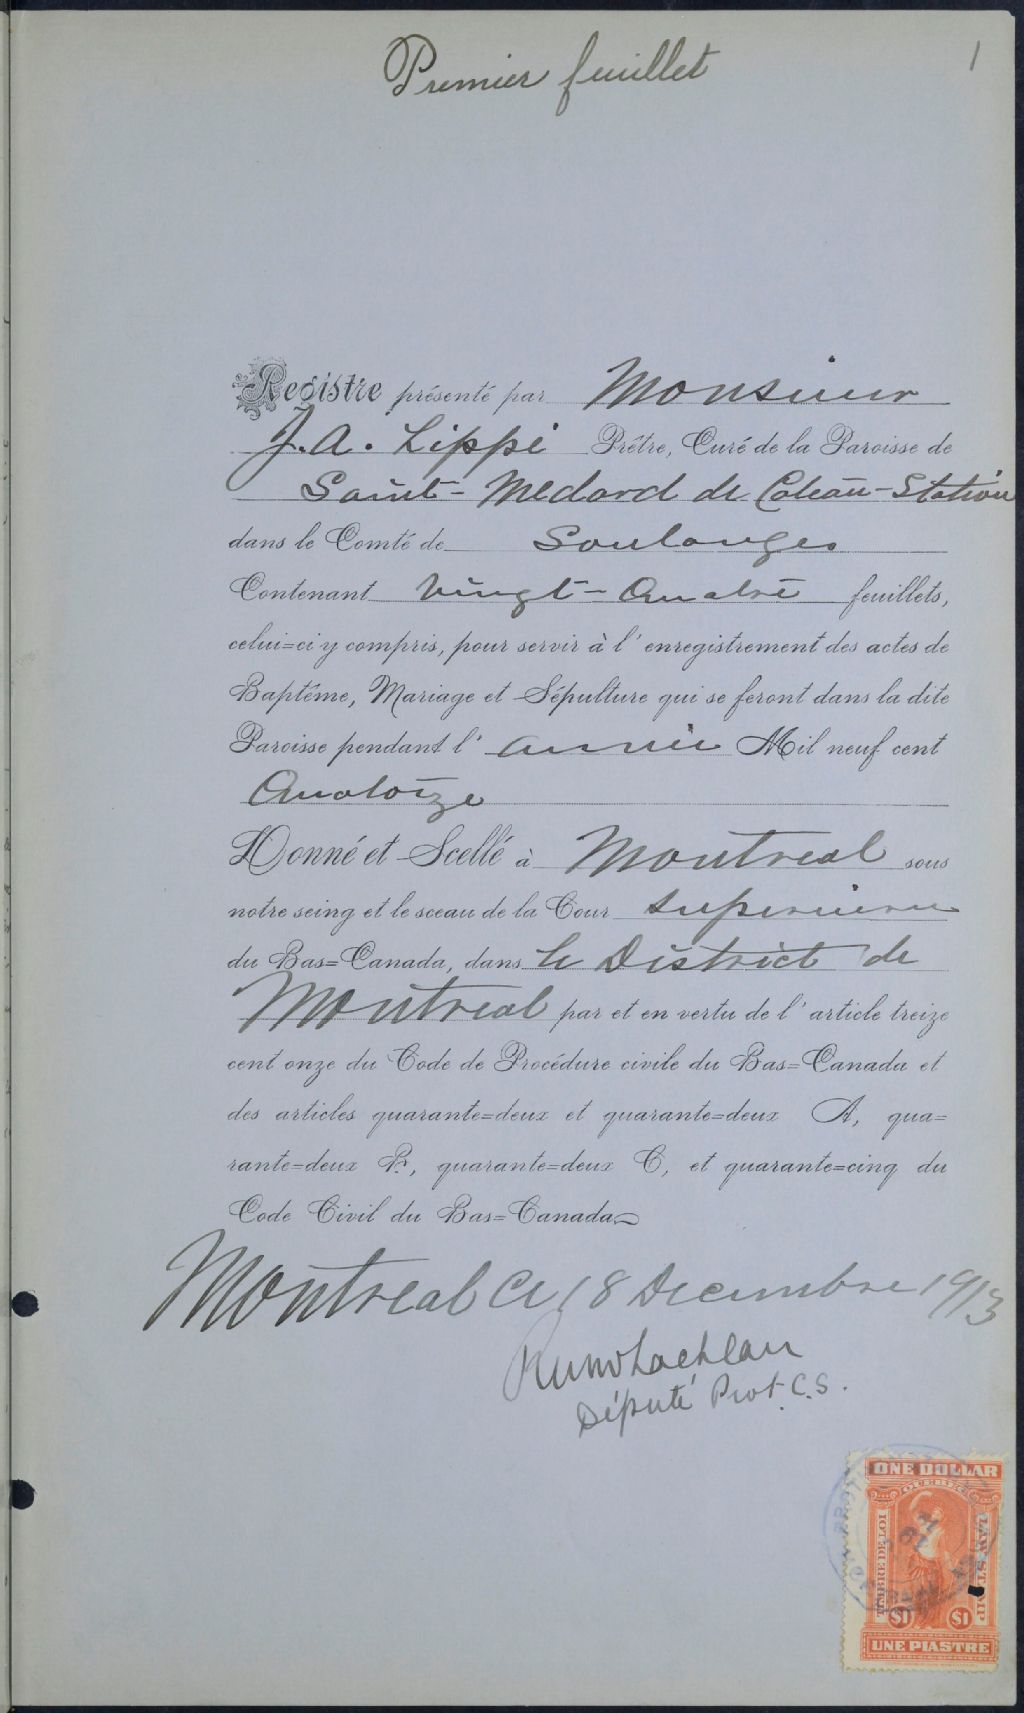 Premier feuillet
1
Registre présenté par Monsieur
J. A. Lippé Prêtre, Curé de la Paroisse de
Saint-Medard de Coteau-Station
dans le Comté de Soulanges
Contenant Vingt-Quatre feuillets,
celui=ci y compris, pour servir à l'enregistrement des actes de
Baptême, Mariage et Sépulture qui se feront dans la dite
Paroisse pendant l'année Mil neuf cent
Quatorze
Donné et Scellé à Montreal sous
notre seing et le sceau de la Cour Superieure
du Bas=Canada, dans le District de
Montreal par et en vertu de l'article treize
cent onze du Code de Procédure civile du Bas=Canada et
des articles quarante=deux et quarante=deux A, qua=
rante=deux B, quarante=deux C, et quarante=cinq du
Code Civil du Bas=Canada
Montreal ce 18 Decembre 1913
Député Prot. C.S.
ONE DOLLAR
QUEBEC
TIMBRE DE LOI
LAW STAMP
$1 $1
UNE PIASTRE